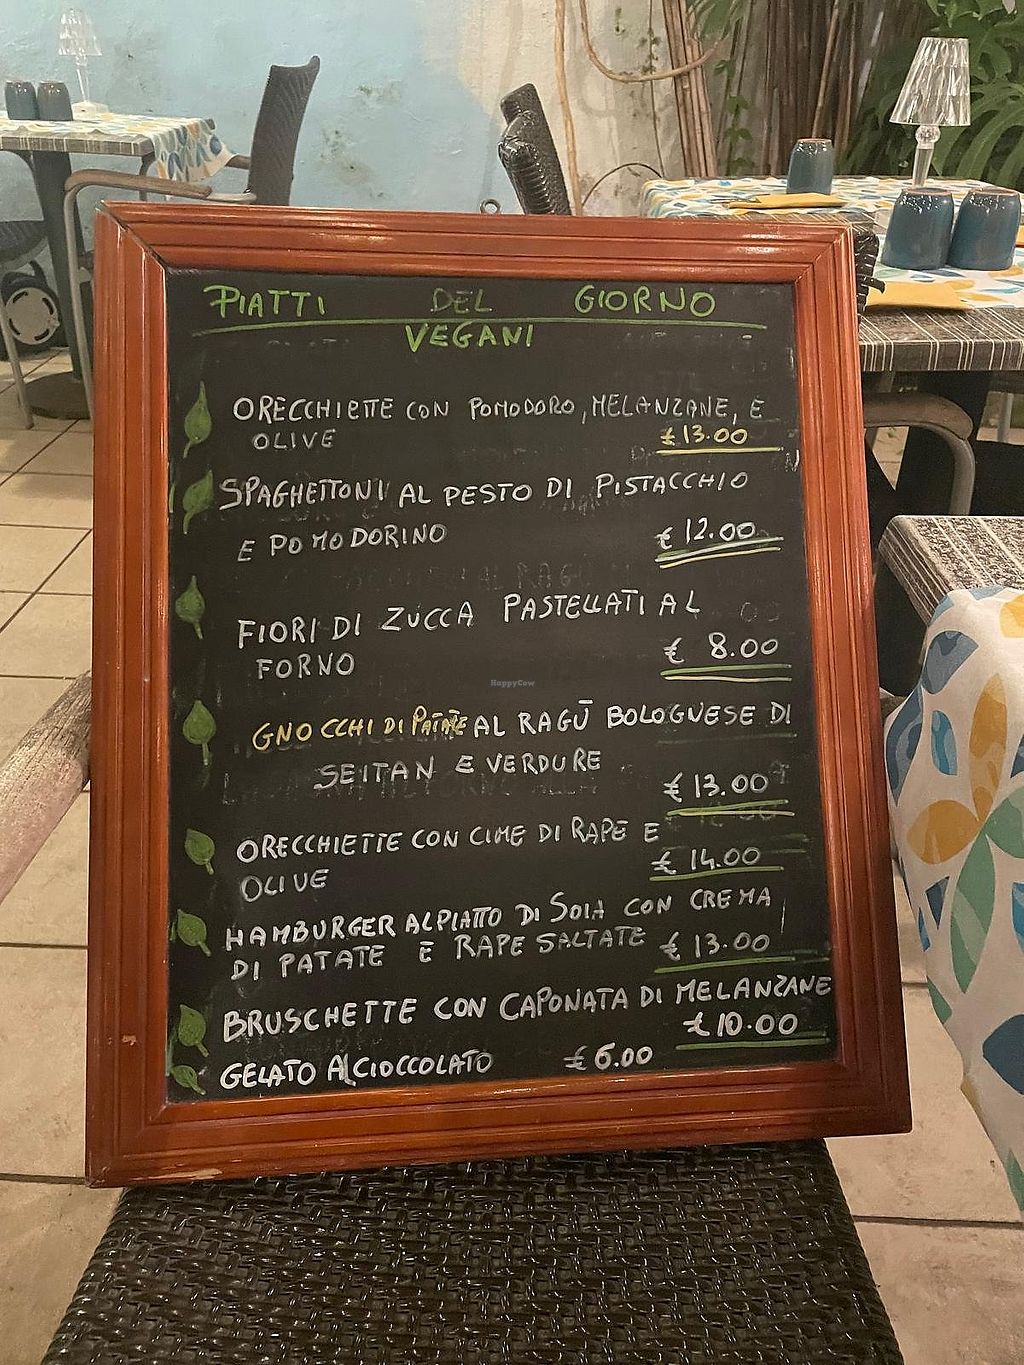 PIATTI DEL GIORNO
VEGANI
ORECCHIETTE CON POMODORO, MELANZANE, E
OLIVE € 13.00
SPAGHETTONI AL PESTO DI PISTACCHIO
E POMODORINO € 12.00
FIORI DI ZUCCA PASTELLATI AL
FORNO € 8.00
GNOCCHI DI PATATE AL RAGÙ BOLOGNESE DI
SEITAN E VERDURE
€ 13.00
ORECCHIETTE CON CIME DI RAPE E
OLIVE € 14.00
HAMBURGER AL PIATTO DI SOIA CON CREMA
DI PATATE E RAPE SALTATE € 13.00
BRUSCHETTE CON CAPONATA DI MELANZANE
€ 10.00
GELATO AL CIOCCOLATO € 6.00
HappyCow